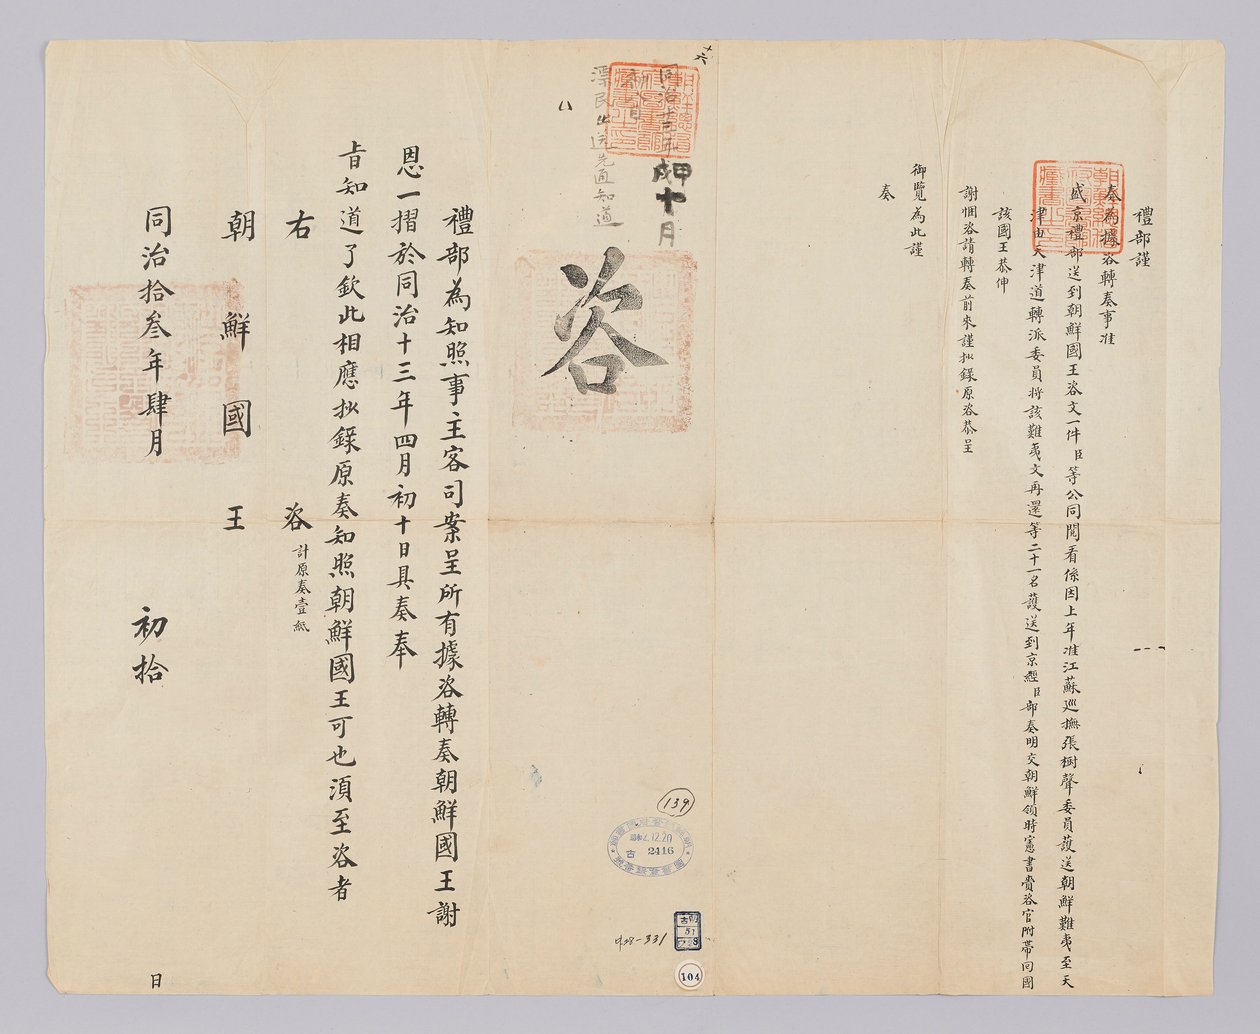 禮部謹
奏為據咨轉奏事准
盛京禮部送到朝鮮國王咨文一件臣等公同閱看係因上年准江蘇巡撫張樹聲委員護送朝鮮難夷至天
津由天津道轉派委員將該難夷文再還等二十一名護送到京經臣部奏明交朝鮮領時憲書賫咨官附帶回國
該國王恭伸
謝悃咨請轉奏前來謹抄錄原咨恭呈
御覽為此謹
奏
十六
同治十三年
甲戌十月
漂民出送先通知道
八
咨
139
12.20
古
2416
朝
古
51
104
禮部為知照事主客司案呈所有據咨轉奏朝鮮國王謝
恩一摺於同治十三年四月初十日具奏奉
旨知道了欽此相應抄錄原奏知照朝鮮國王可也須至咨者
右咨 計原奏壹紙
朝鮮國王
同治拾叄年肆月初拾日